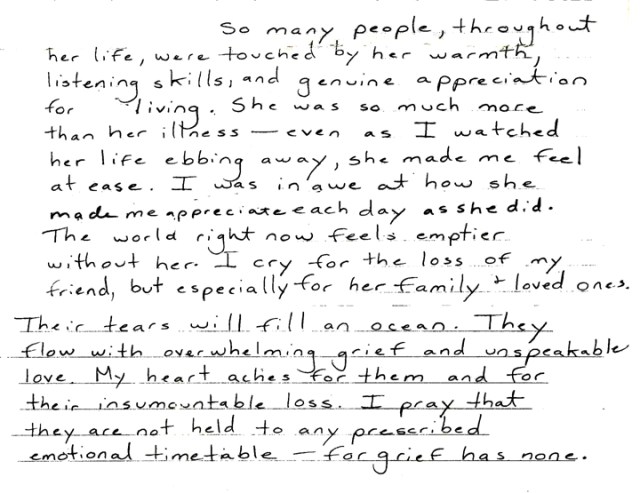 So many people, throughout
her life, were touched by her warmth,
listening skills, and genuine appreciation
for living. She was so much more
than her illness — even as I watched
her life ebbing away, she made me feel
at ease. I was in awe at how she
made me appreciate each day as she did.
The world right now feels emptier
without her. I cry for the loss of my
friend, but especially for her family + loved ones.
Their tears will fill an ocean. They
flow with overwhelming grief and unspeakable
love. My heart aches for them and for
their insumountable loss. I pray that
they are not held to any prescribed
emotional timetable — for grief has none.